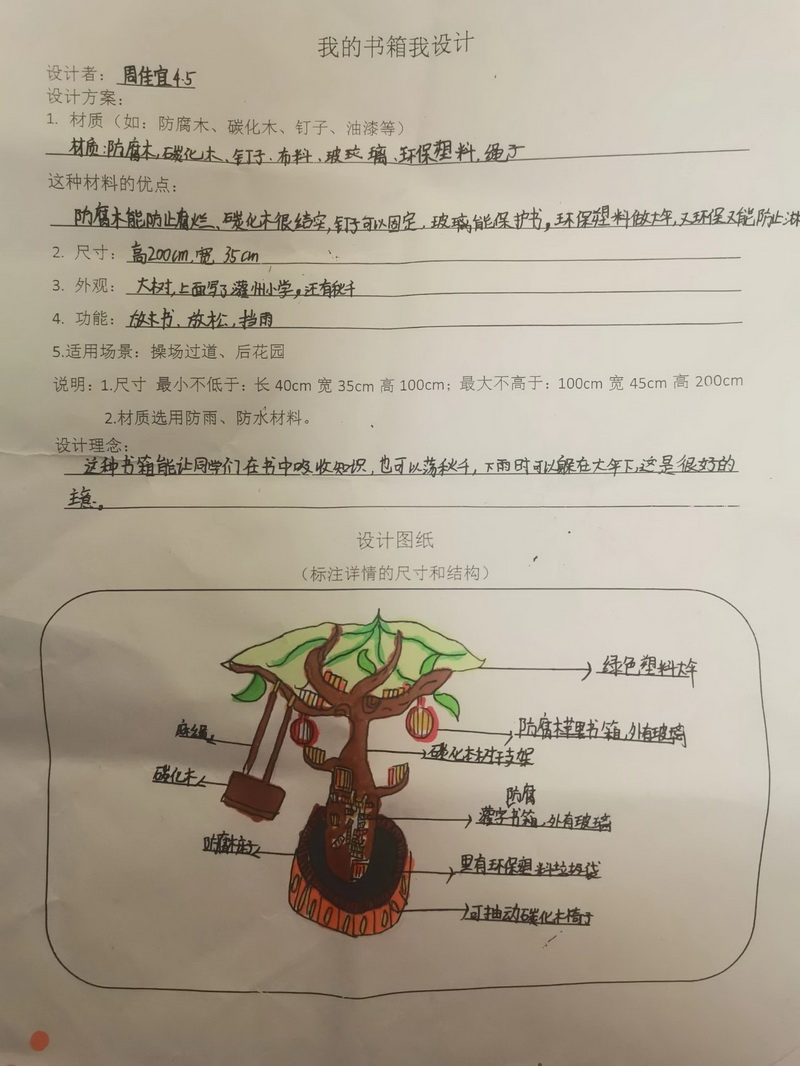 我的书箱我设计
设计者：周佳宜4.5
设计方案：
1. 材质（如：防腐木、碳化木、钉子、油漆等）
材质：防腐木，碳化木、钉子、布料、玻玻璃、环保塑料，绳子
这种材料的优点：
防腐木能防止腐烂、碳化木很结实，钉子可以固定，玻璃能保护书，环保塑料做大伞，又环保又能防止淋
2. 尺寸：高200cm，宽35cm
3. 外观：大树，上面写了灌州小学，还有秋千
4. 功能：放书、放松，挡雨
5.适用场景：操场过道、后花园
说明：1.尺寸 最小不低于：长 40cm 宽 35cm 高 100cm；最大不高于：100cm 宽 45cm 高 200cm
2.材质选用防雨、防水材料。
设计理念：
这种书箱能让同学们在书中吸收知识，也可以荡秋千，下雨时可以躲在大伞下，这是很好的
主意。
设计图纸
（标注详情的尺寸和结构）
绿色塑料大伞
防腐木苹果书箱，外有玻璃
麻绳
碳化木树干支架
碳化木
防腐
灌字书箱，外有玻璃
防腐木
里有环保塑料垃圾袋
可抽动碳化木椅子